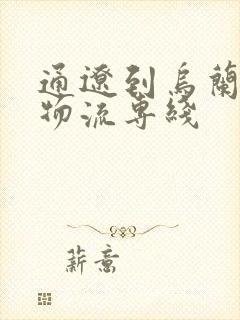 通遼到烏蘭
物流專綫
薪意